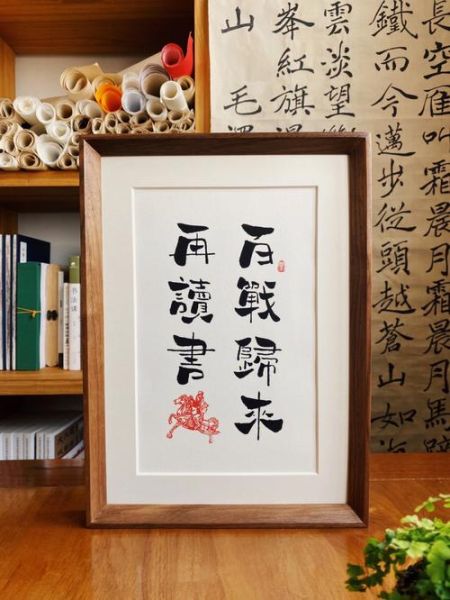 百戰歸來
再讀書
長空雁叫霜晨月霜晨月馬蹄
鐵而今邁步從頭越蒼山如海
雲淡望
峯紅旗
山 毛